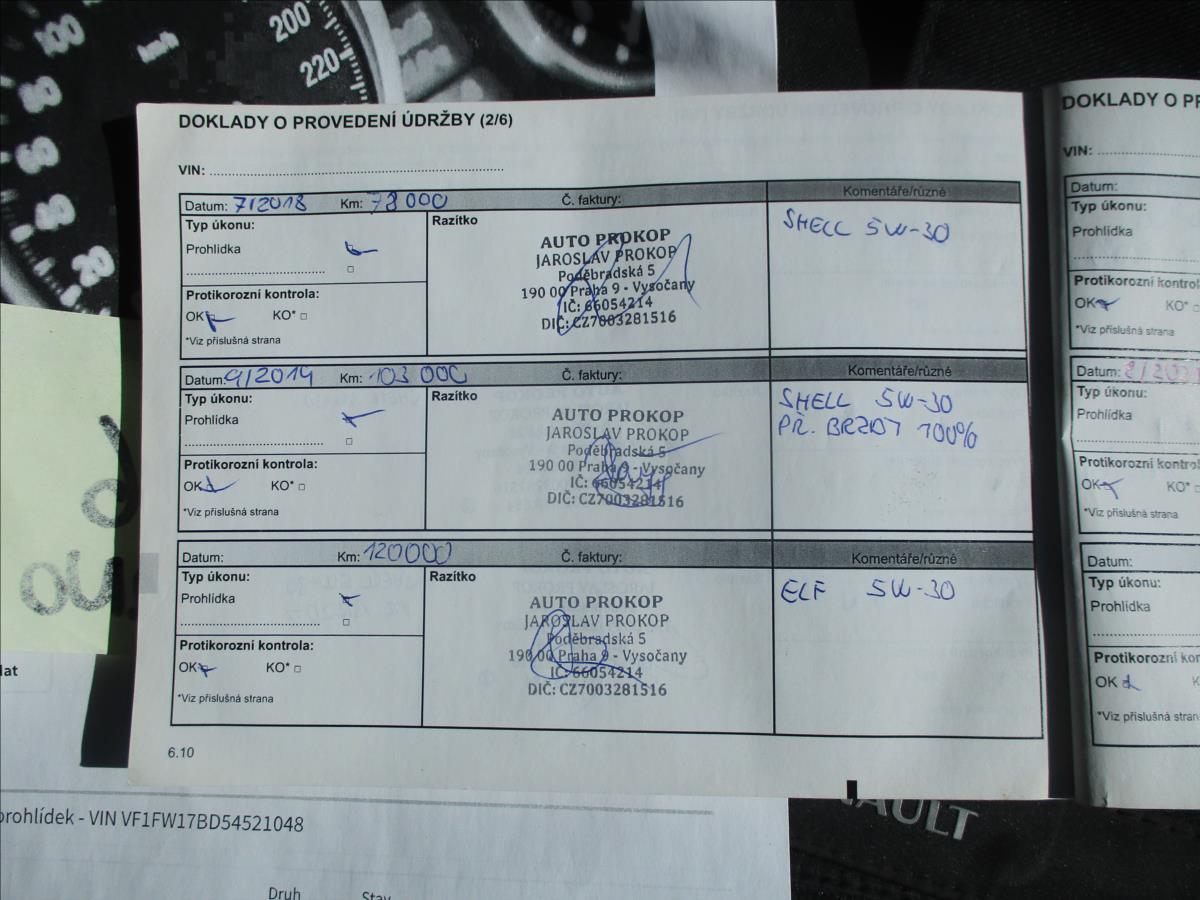 200
100
220
80
60
40
20
DOKLADY O PROVEDENÍ ÚDRŽBY (2/6)
VIN:
Datum: 7/2018 Km: 78 000 Č. faktury: Komentáře/různé
Typ úkonu:
Prohlídka
Protikorozní kontrola:
OK KO*
*Viz příslušná strana
Razítko
AUTO PROKOP
JAROSLAV PROKOP
Poděbradská 5
190 00 Praha 9 - Vysočany
IČ: 66054214
DIČ: CZ7003281516
SHELL 5W-30
Datum: 9/2019 Km: 103 000 Č. faktury: Komentáře/různé
Typ úkonu:
Prohlídka
Protikorozní kontrola:
OK KO*
*Viz příslušná strana
Razítko
AUTO PROKOP
JAROSLAV PROKOP
Poděbradská 5
190 00 Praha 9 - Vysočany
IČ: 66054214
DIČ: CZ7003281516
SHELL 5W-30
PŘ. BRZDY 100%
Datum: Km: 120000 Č. faktury: Komentáře/různé
Typ úkonu:
Prohlídka
Protikorozní kontrola:
OK KO*
*Viz příslušná strana
Razítko
AUTO PROKOP
JAROSLAV PROKOP
Poděbradská 5
190 00 Praha 9 - Vysočany
IČ: 66054214
DIČ: CZ7003281516
ELF 5W-30
6.10
DOKLADY O PR
VIN:
Datum:
Typ úkonu:
Prohlídka
Protikorozní kontrol
OK KO*
*Viz příslušná strana
Datum:
Typ úkonu:
Prohlídka
Protikorozní kontro
OK KO*
*Viz příslušná strana
Datum:
Typ úkonu:
Prohlídka
Protikorozní kon
OK
*Viz příslušná stran
dat
prohlídek - VIN VF1FW17BD54521048
Druh Stav
NAULT